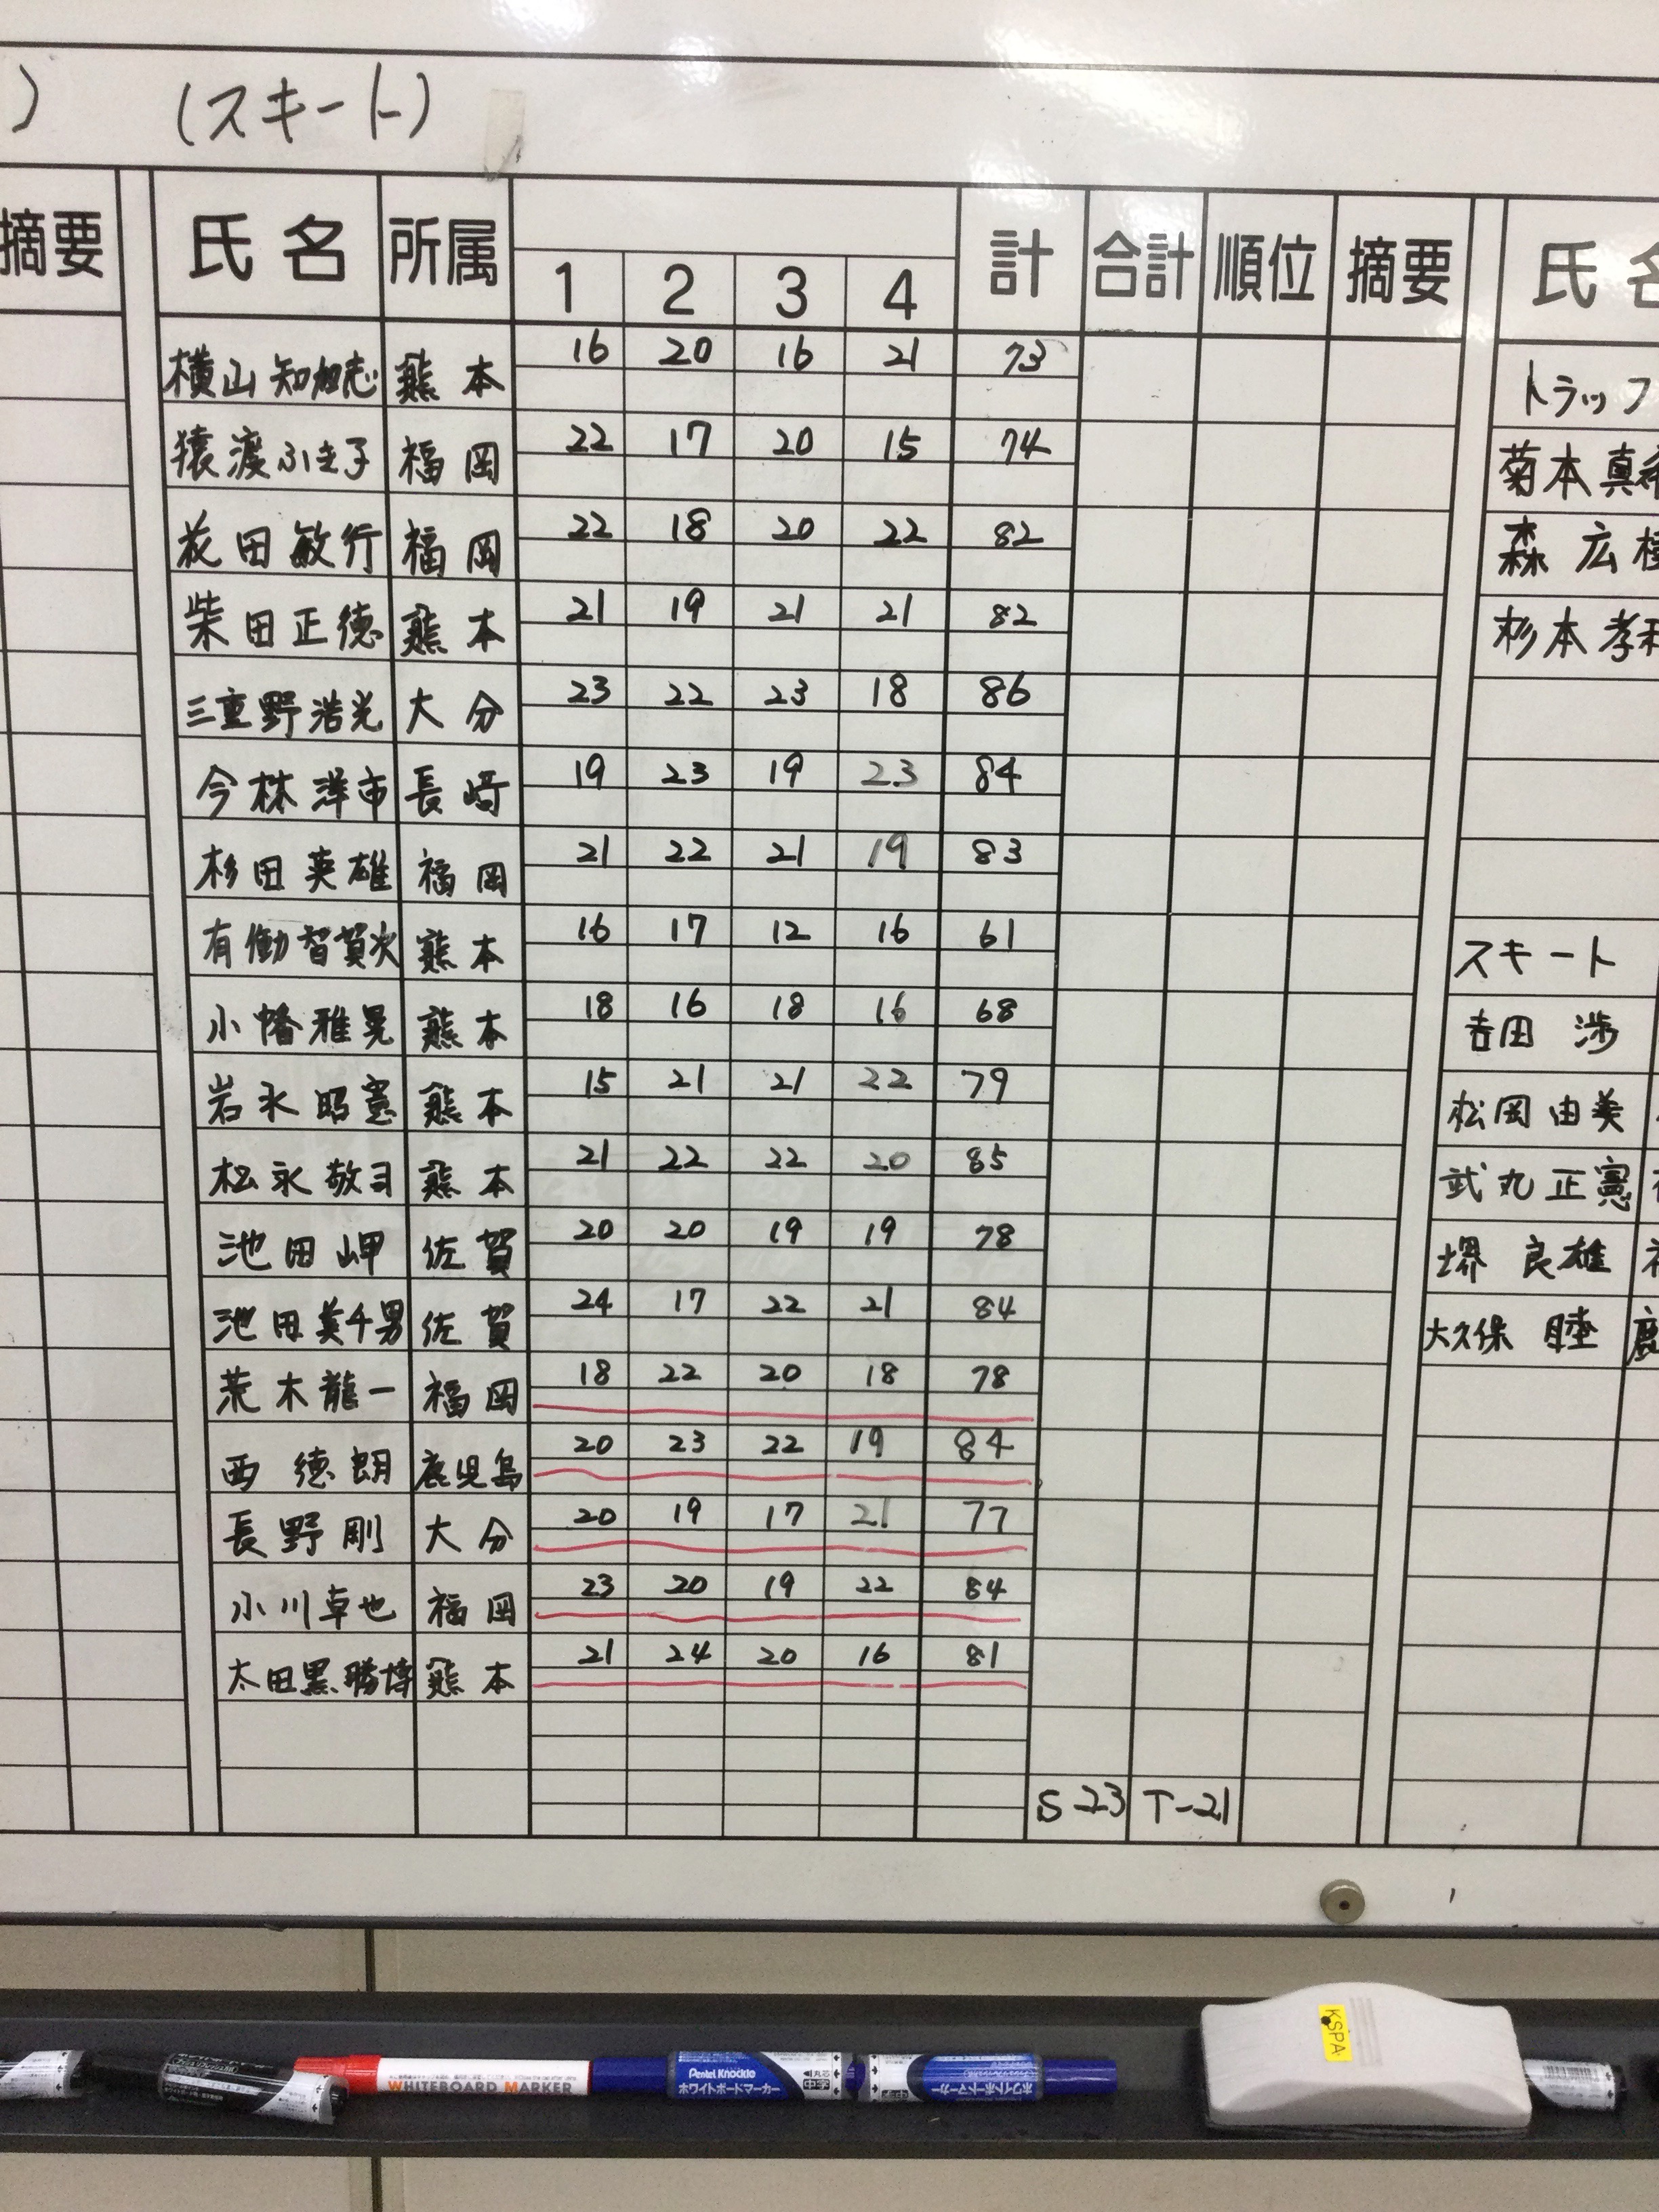 (スキート)
摘要 氏名 所属 1 2 3 4 計 合計 順位 摘要 氏
横山知加志 熊本 16 20 16 21 73
猿渡ふき子 福岡 22 17 20 15 74
花田敏行 福岡 22 18 20 22 82
柴田正徳 熊本 21 19 21 21 82
三重野浩光 大分 23 22 23 18 86
今林洋市 長崎 19 23 19 23 84
杉田英雄 福岡 21 22 21 19 83
有働智賀次 熊本 16 17 12 16 61
小幡雅晃 熊本 18 16 18 16 68
岩永昭憲 熊本 15 21 21 22 79
松永敬司 熊本 21 22 22 20 85
池田岬 佐賀 20 20 19 19 78
池田美千男 佐賀 24 17 22 21 84
荒木龍一 福岡 18 22 20 18 78
西徳朗 鹿児島 20 23 22 19 84
長野剛 大分 20 19 17 21 77
小川卓也 福岡 23 20 19 22 84
太田黒勝博 熊本 21 24 20 16 81
S 23 T-21
トラップ
菊本真
森広
杉本孝
スキート
吉田渉
松岡由美
武丸正憲
堺良雄
大久保睦
KSPA
WHITEBOARD MARKER
Pentel Knockle
ホワイトボードマーカー
ホワイトボードマーカー